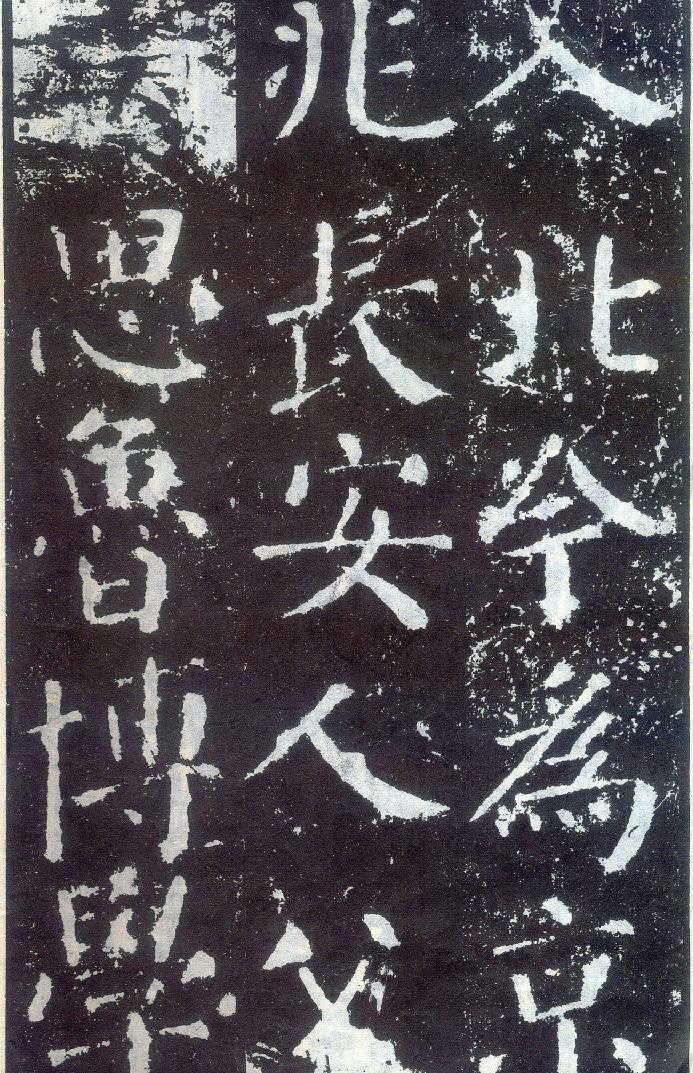 人北今為京
兆長安人父
思魯博學